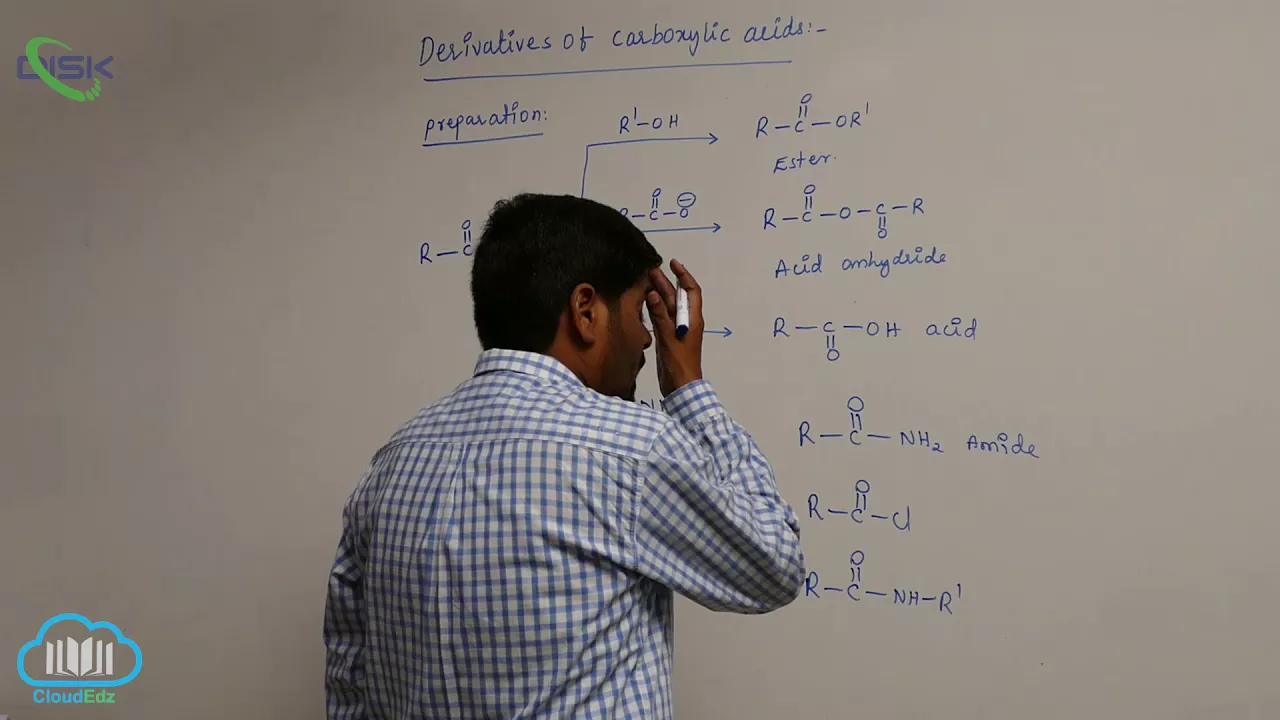 DISK
Derivatives of carboxylic acids:-
preparation:
R'-OH
R-C-OR'
O
Ester.
O
-C-O
R-C-O-C-R
O
O
R-C
O
Acid anhydride
R-C-OH acid
O
O
R-C-NH2 Amide
O
R-C-Cl
O
R-C-NH-R'
CloudEdz